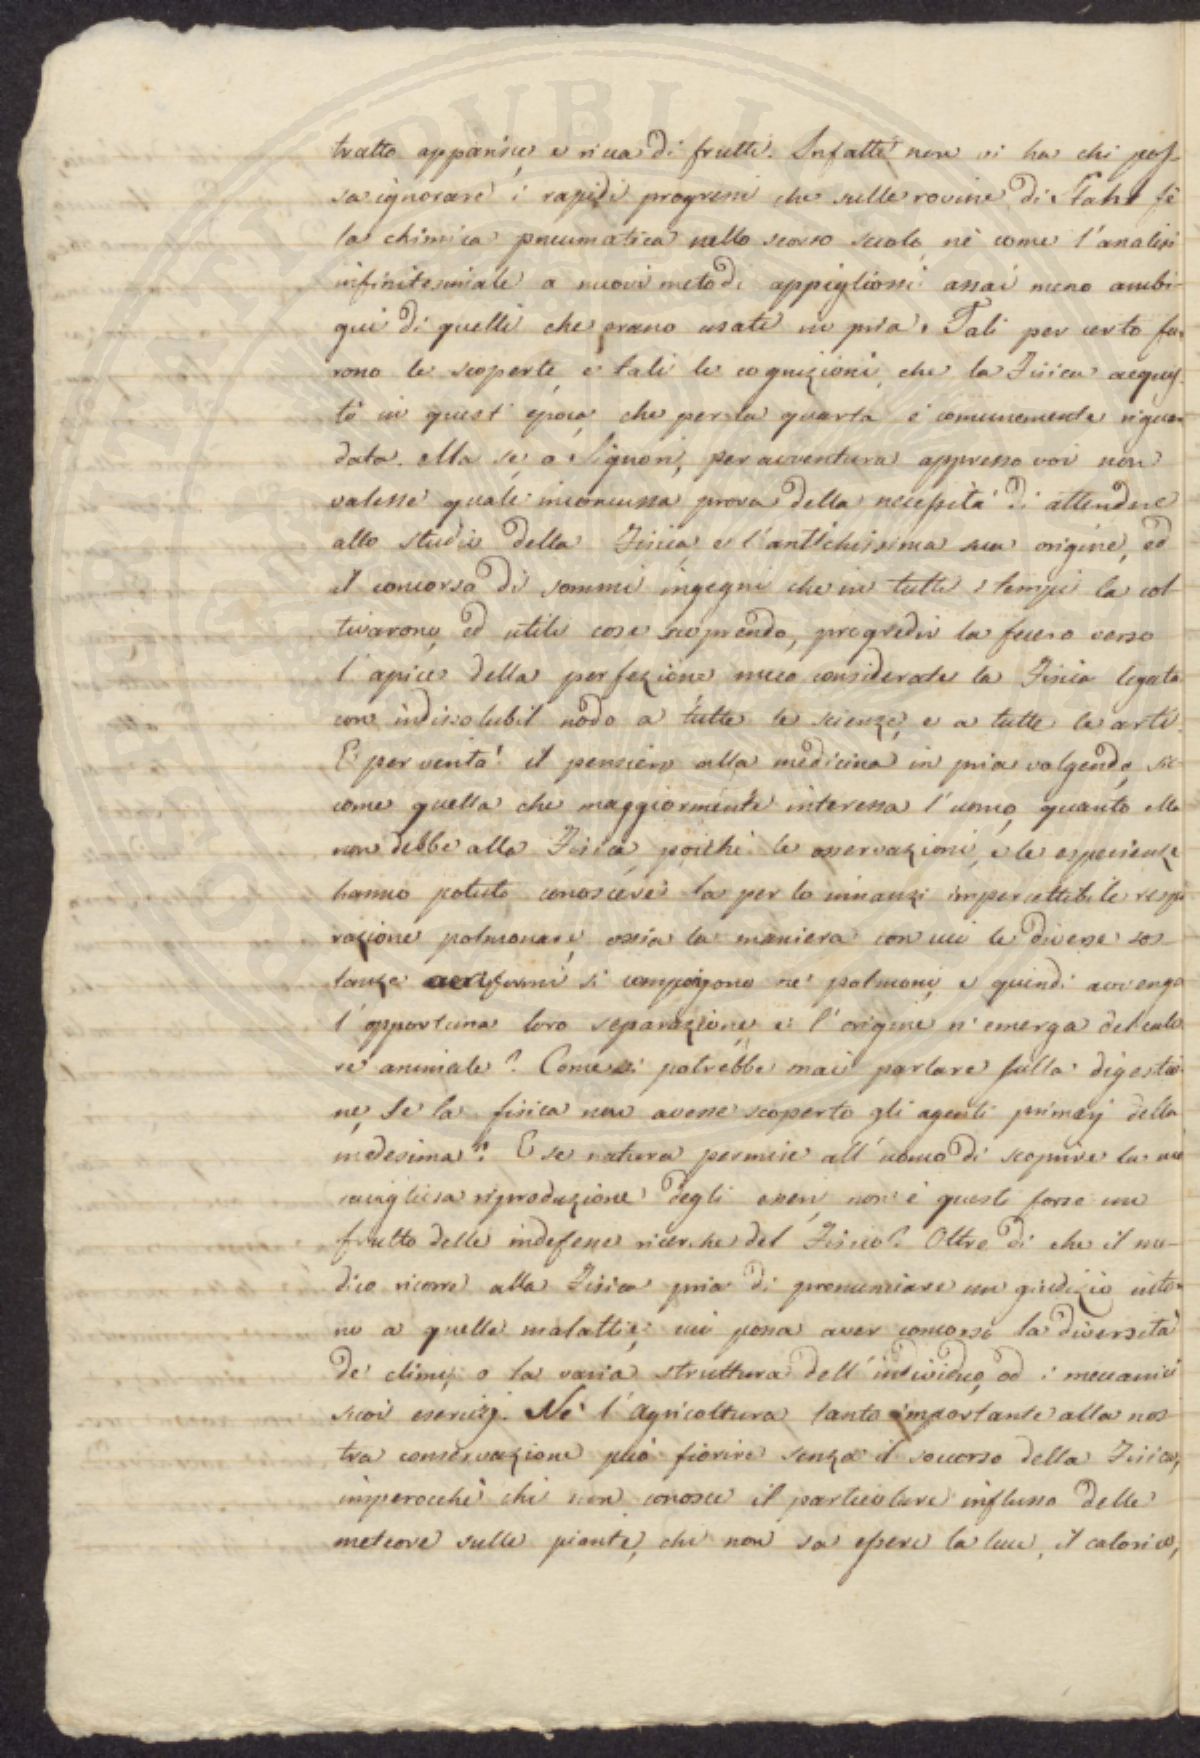 tratto apparisce e ricca di frutti. Infatti non vi ha chi pos-
sa ignorare i rapidi progressi che sulle rovine di Stahl fè
la chimica pneumatica nello scorso secolo, nè come l'analisi
infinitesimale a nuovi metodi appigliossi assai meno ambi-
gui di quelli che erano usati in pria. Tali per certo fu-
rono le scoperte, e tali le cognizioni, che la Fisica acquis-
tò in quest'epoca, che per la quarta è comunemente riguar-
data. Ma se, o Signori, per avventura appresso voi non
valesse quale inconcussa prova della necessità di attendere
allo studio della Fisica e l'antichissima sua origine, ed
il concorso di sommi ingegni che in tutti i tempi la col-
tivarono, ed utili cose scoprendo, progredir la fecero verso
l'apice della perfezione meco considerate la Fisica legata
con indissolubil nodo a tutte le scienze, e a tutte le arti.
E per verità il pensiero alla medicina in pria volgendo, sic-
come quella che maggiormente interessa l'uomo, quanto ella
non debbe alla Fisica, poichè le osservazioni, e le esperienze
hanno potuto conoscere la per lo innanzi impercettibile respi-
razione polmonare, ossia la maniera con cui le diverse sos-
tanze aeriformi si compongono ne' polmoni, e quindi avvenga
l'opportuna loro separazione, e l'origine n'emerga del calo-
re animale? Come si potrebbe mai parlare sulla digestio-
ne, se la fisica non avesse scoperto gli agenti primarj della
medesima? E se natura permise all'uomo di scoprire la me-
ravigliosa riproduzione degli esseri, non è questi forse un
frutto delle indefesse ricerche del Fisico? Oltre di che il me-
dico ricorre alla Fisica pria di pronunciare un giudizio intor-
no a quelle malattie, cui possa aver concorso la diversità
de' climi, o la varia struttura dell'individuo, od i meccanici
suoi esercizj. Nè l'Agricoltura tanto importante alla nos-
tra conservazione può fiorire senza il soccorso della Fisica,
imperocchè chi non conosce il particolare influsso delle
meteore sulle piante, chi non sa essere la luce, il calorico,